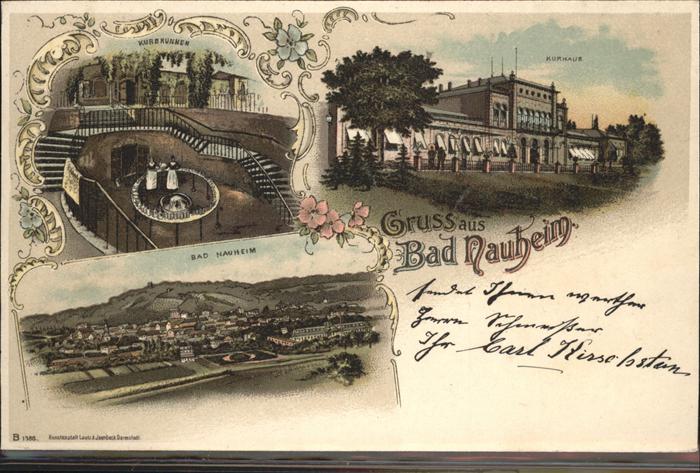 KURBRUNNEN
KURHAUS
Gruss aus
Bad Nauheim.
BAD NAUHEIM
sendet Ihnen werther
Herrn
Ihr Carl Kirschstein
B 1386.
Kunstanstalt Lautz & Isenbeck Darmstadt.